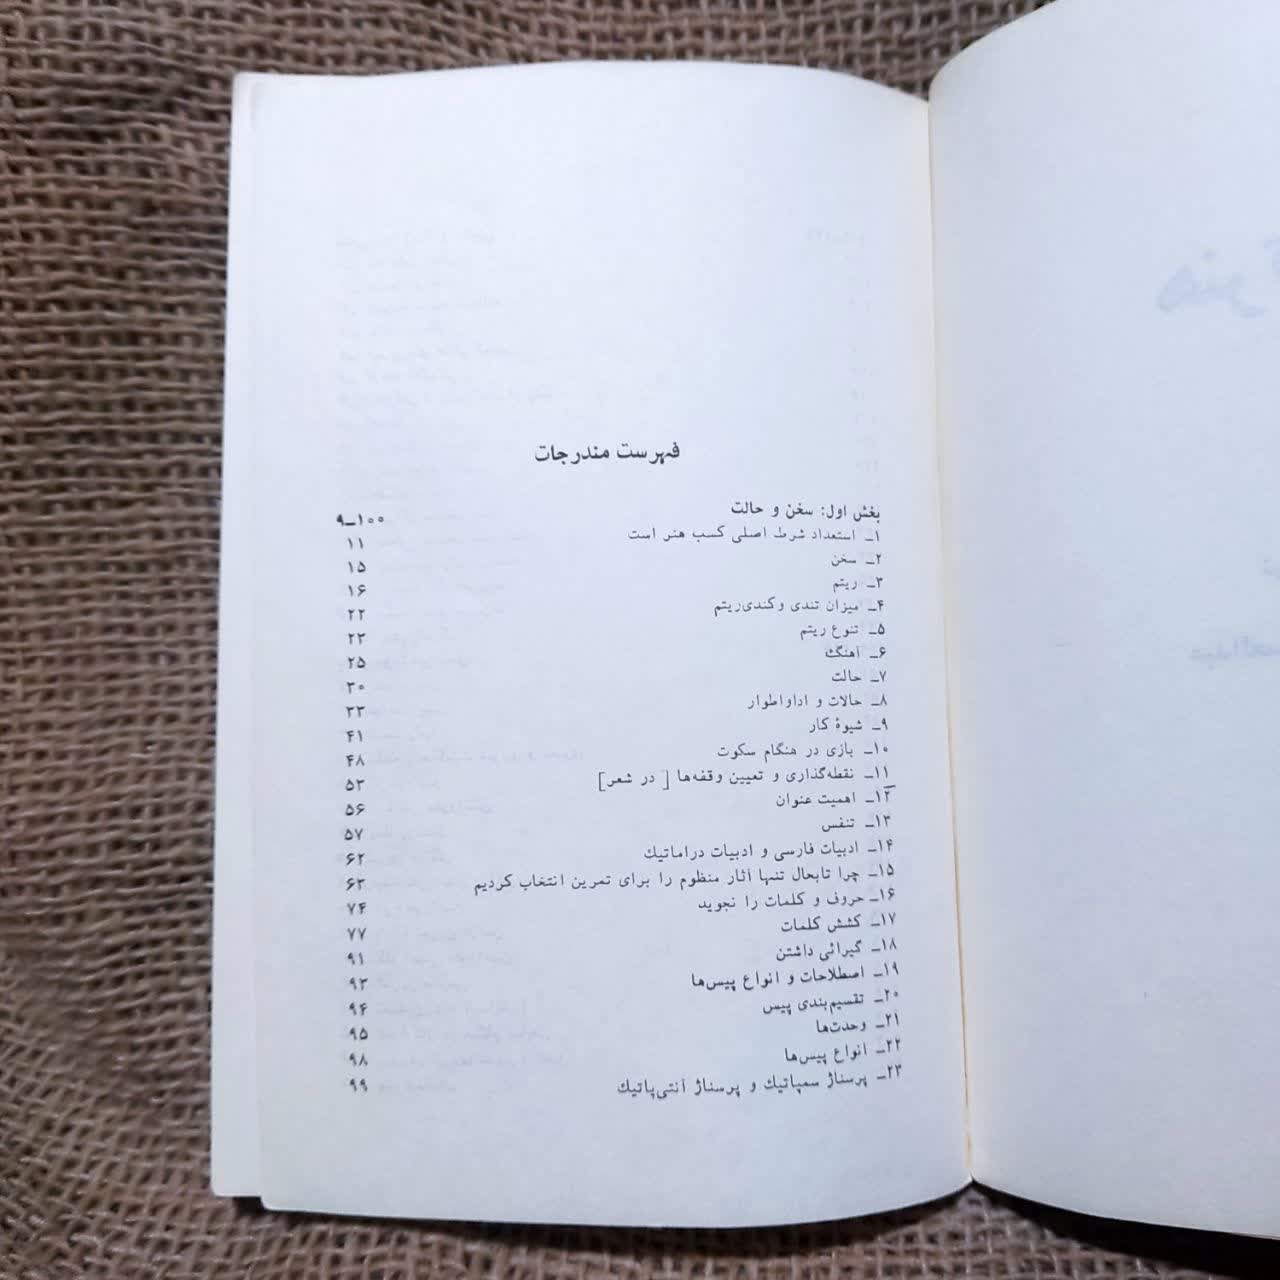 فهرست مندرجات
بخش اول: سخن و حالت ۹ـ۱۰۰
۱ـ استعداد شرط اصلی کسب هنر است ۱۱
۲ـ سخن ۱۵
۳ـ ریتم ۱۶
۴ـ میزان تندی و کندی ریتم ۲۲
۵ـ تنوع ریتم ۲۳
۶ـ آهنگ ۲۵
۷ـ حالت ۳۰
۸ـ حالات و اداواطوار ۳۳
۹ـ شیوهٔ کار ۴۱
۱۰ـ بازی در هنگام سکوت ۴۸
۱۱ـ نقطه‌گذاری و تعیین وقفه‌ها [در شعر] ۵۳
۱۲ـ اهمیت عنوان ۵۶
۱۳ـ تنفس ۵۷
۱۴ـ ادبیات فارسی و ادبیات دراماتیك ۶۲
۱۵ـ چرا تابحال تنها آثار منظوم را برای تمرین انتخاب کردیم ۶۳
۱۶ـ حروف و کلمات را نجوید ۷۴
۱۷ـ کشش کلمات ۷۷
۱۸ـ گیرائی داشتن ۹۱
۱۹ـ اصطلاحات و انواع پیس‌ها ۹۳
۲۰ـ تقسیم‌بندی پیس ۹۴
۲۱ـ وحدت‌ها ۹۵
۲۲ـ انواع پیس‌ها ۹۸
۲۳ـ پرسناژ سمپاتیك و پرسناژ آنتی‌پاتیك ۹۹
هنر